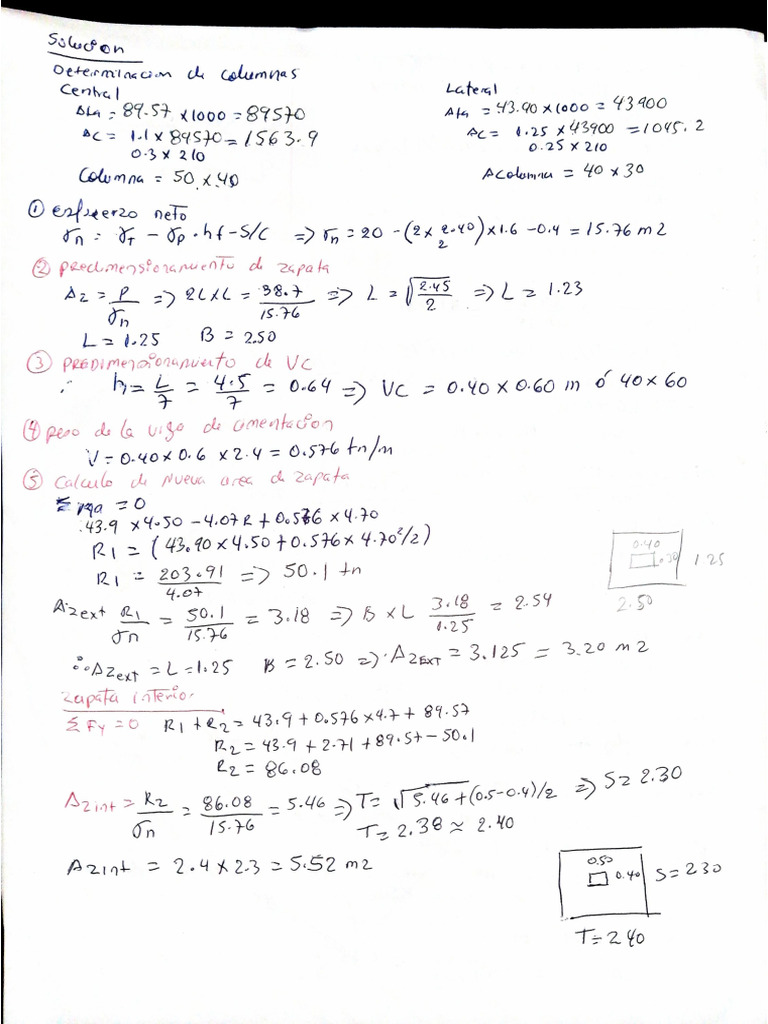 Solucion
Determinacion de columnas
Central
Ata = 89.57 x1000 = 89570
AC = 1.1 x 89570 = 1563.9
0.3 x 210
Columna = 50 x 40
Lateral
Ata = 43.90 x1000 = 43900
AC = 1.25 x 43900 = 1045.2
0.25 x 210
Acolumna = 40 x 30
① esfuerzo neto
σn = σT - σp · hf - S/C => σn = 20 - (2 x 2.40/2) x 1.6 - 0.4 = 15.76 m2
② predimensionamiento de zapata
Az = P/σn => 2LxL = 38.7/15.76 => L = √2.45/2 => L = 1.23
L = 1.25 B = 2.50
③ PREDIMENSIONAMIENTO de VC
∴ h = L/7 = 4.5/7 = 0.64 => VC = 0.40 x 0.60 m ó 40 x 60
④ peso de la viga de cimentacion
V = 0.40 x 0.6 x 2.4 = 0.576 tn/m
⑤ Calculo de nueva area de zapata
Σ ma = 0
43.9 x 4.50 - 4.07R + 0.576 x 4.70
R1 = (43.90 x 4.50 + 0.576 x 4.70²/2)
R1 = 203.91/4.07 => 50.1 tn
Azext R1/σn = 50.1/15.76 = 3.18 => B x L 3.18/1.25 = 2.54
0.40
0.30
1.25
2.50
∴ AZEXT = L = 1.25 B = 2.50 => AZEXT = 3.125 = 3.20 m2
Zapata interior
Σ Fy = 0 R1 + R2 = 43.9 + 0.576 x 4.7 + 89.57
R2 = 43.9 + 2.71 + 89.57 - 50.1
R2 = 86.08
Azint = R2/σn = 86.08/15.76 = 5.46 => T = √5.46 + (0.5 - 0.4)/2 => S = 2.30
T = 2.38 ≈ 2.40
Azint = 2.4 x 2.3 = 5.52 m2
0.50
0.40
S = 230
T = 240